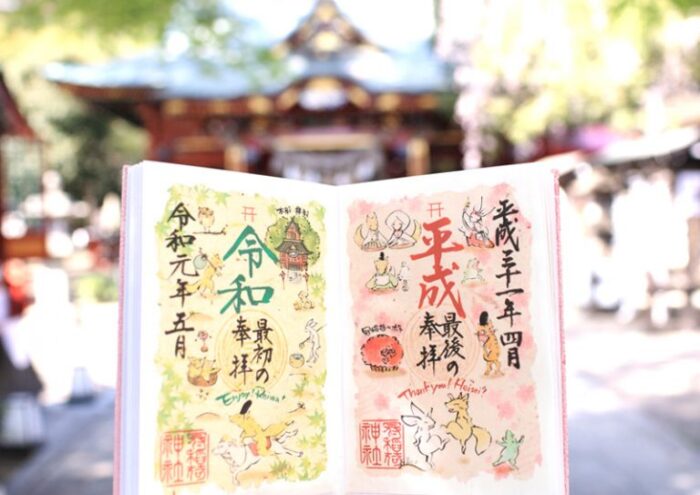 平成三十一年四月
平成
最後の
奉拝
Thank you! Heisei
神社
令和
最初の
奉拝
令和元年五月
Enjoy! Reiwa
神社